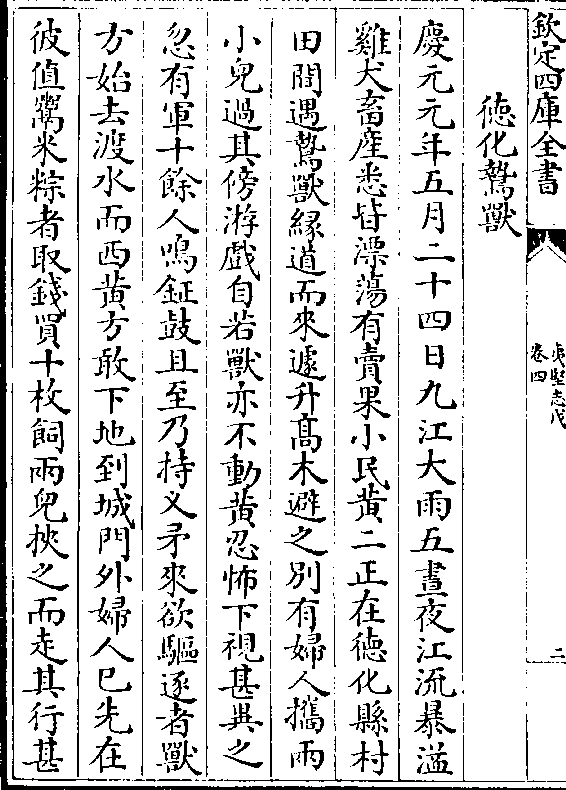 欽定四庫全書
夷堅志戊
卷四
二
德化鷙獸
慶元元年五月二十四日九江大雨五晝夜江流暴溢
雞犬畜産悉皆漂蕩有賣果小民黄二正在德化縣村
田間遇鷙獸縁道而來遽升髙木避之别有婦人攜兩
小兒過其傍游戲自若獸亦不動黄忍怖下視甚異之
忽有軍十餘人鳴鉦鼓且至乃持义矛來欲驅逐者獸
方始去渡水而西黄方敢下地到城門外婦人已先在
彼值鬻米粽者取錢買十枚飼兩兒挾之而走其行甚